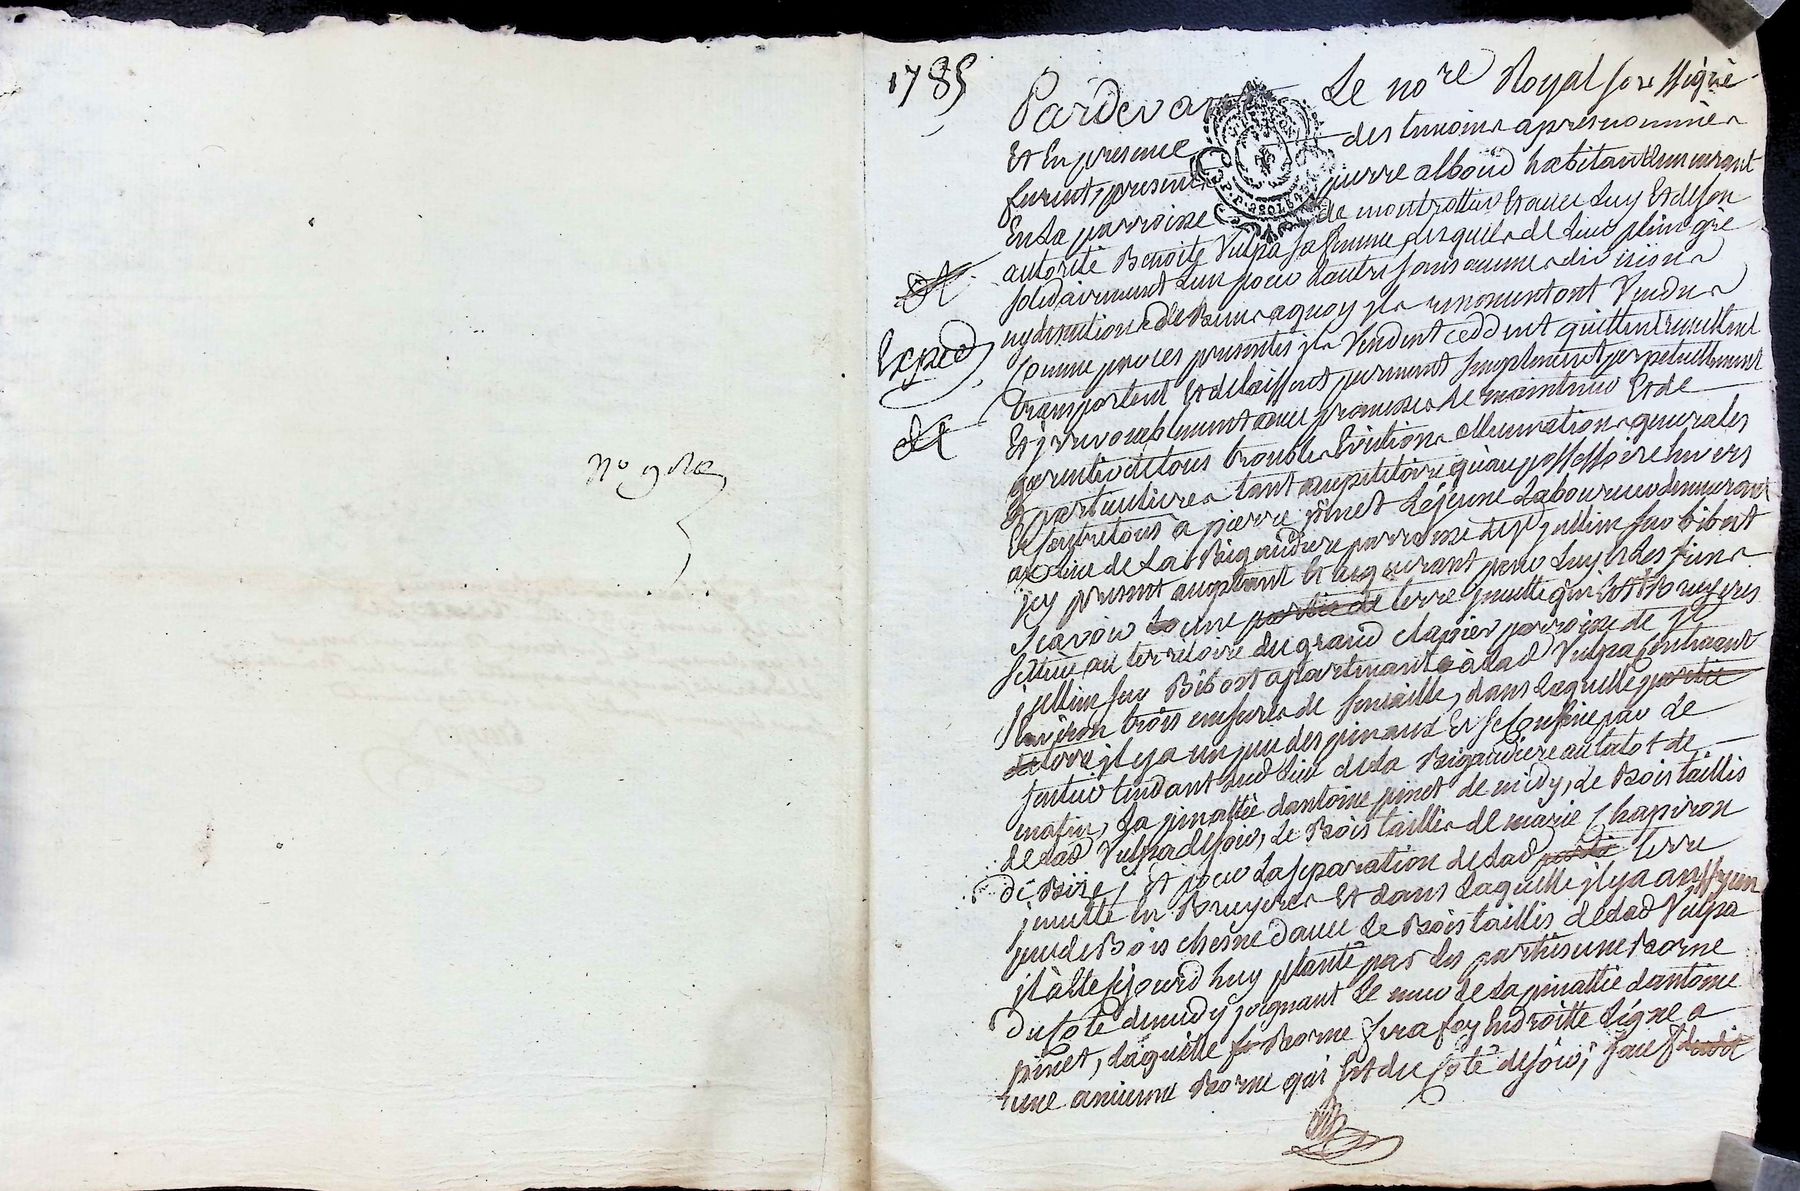 1785
Pardevant Le no.re Royal soussigné
Et En presence des temoins apres nommés
furent presents pierre alboud habitant demeurant
En La parroisse de montrottier Et avec Luy Et de son
autorité Benoite Vulpa sa femme, lesquels de Leur plein gré
solidairement L'un pour L'autre sans aucunes divisions
ny de biens a quoy ils renoncent ont Vendu
Comme par ces presentes ils Vendent ceddent quittent remettent
transportent Et delaissent purement simplement perpetuellement
Et jrrevocablement avec promesse de maintenir Et de
garentir de tous troubles Evictions generales
Et particulieres tant au petitoire qu'au possessoire Envers
Et contre tous a pierre pinet Lejeune Laboureur demeurant
au Lieu de La Rigaudiere parroisse de st jullien sur bibost
jcy present acceptant Et acquerant pour Luy Et les siens
Scavoir une partie de terre jnculte Bruyeres
Située au territoire du grand clapier parroisse de st
jullien sur Bibost apartenant a lad Vulpa contenant
Environ trois mesures de semaille, dans Laquelle partie
de terre il y a un peu des pineaux Et se Confine par de
sentier tendant aud Lieu de La Rigaudiere au Coté de
matin, La pinattée d'antoine pinet de midy, de Bois taillis
de lad Vulpa de soir, Le Bois taillis de marie Chapiron
de Bize, Et pour La separation de lad partie terre
jnculte En Bruyeres Et dans Laquelle il y a aussy un
peu de Bois chesne d'avec Le Bois taillis de lad Vulpa
jl a Eté ce jourd'huy planté par Les parties une Borne
Du Coté de midy joignant Le mur de La pinattée d'antoine
pinet, Laquelle Borne fera foy En droitte Ligne a
une ancienne Borne qui Est du Coté de soir, sauf
Exped
N.º